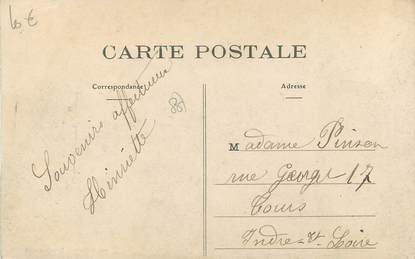 10 €
CARTE POSTALE
Correspondance
Adresse
Souvenirs affectueux
Henriette
Madame Pinson
rue George 17
Tours
Indre-et-Loire